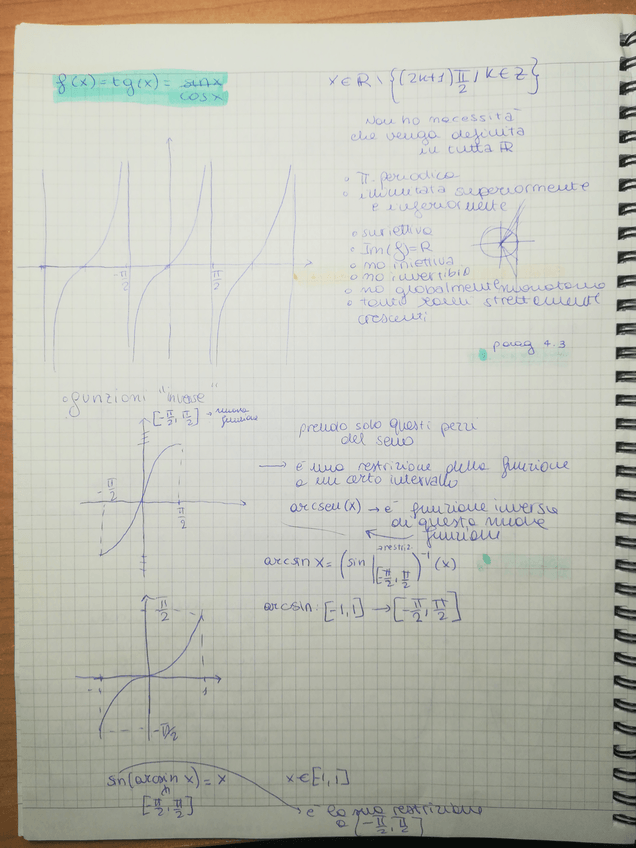 f(x) = tg(x) = sin x / cos x
x ∈ ℝ \ {(2k+1) π/2, k ∈ Z}
Non ho necessità
che venga definita
in tutta ℝ
◦ π periodica
◦ illimitata superiormente
e inferiormente
◦ suriettiva
◦ Im(f) = ℝ
◦ no iniettiva
◦ no invertibile
◦ no globalmente monotona
◦ tanti rami strettamente
crescenti
-π/2
π/2
parag 4.3
◦ funzioni "inverse"
[-π/2, π/2] → nuova
funzione
prendo solo questi pezzi
del seno
→ è una restrizione della funzione
a un certo intervallo
-π/2
π/2
arcsen(x) → è funzione inversa
di questa nuova
funzione
restriz.
arcsin x = (sin |[-π/2, π/2])⁻¹ (x)
arcsin: [-1, 1] → [-π/2, π/2]
π/2
-1
1
-π/2
sin(arcsin x) = x
x ∈ [-1, 1]
[-π/2, π/2]
è la sua restrizione
a [-π/2, π/2]